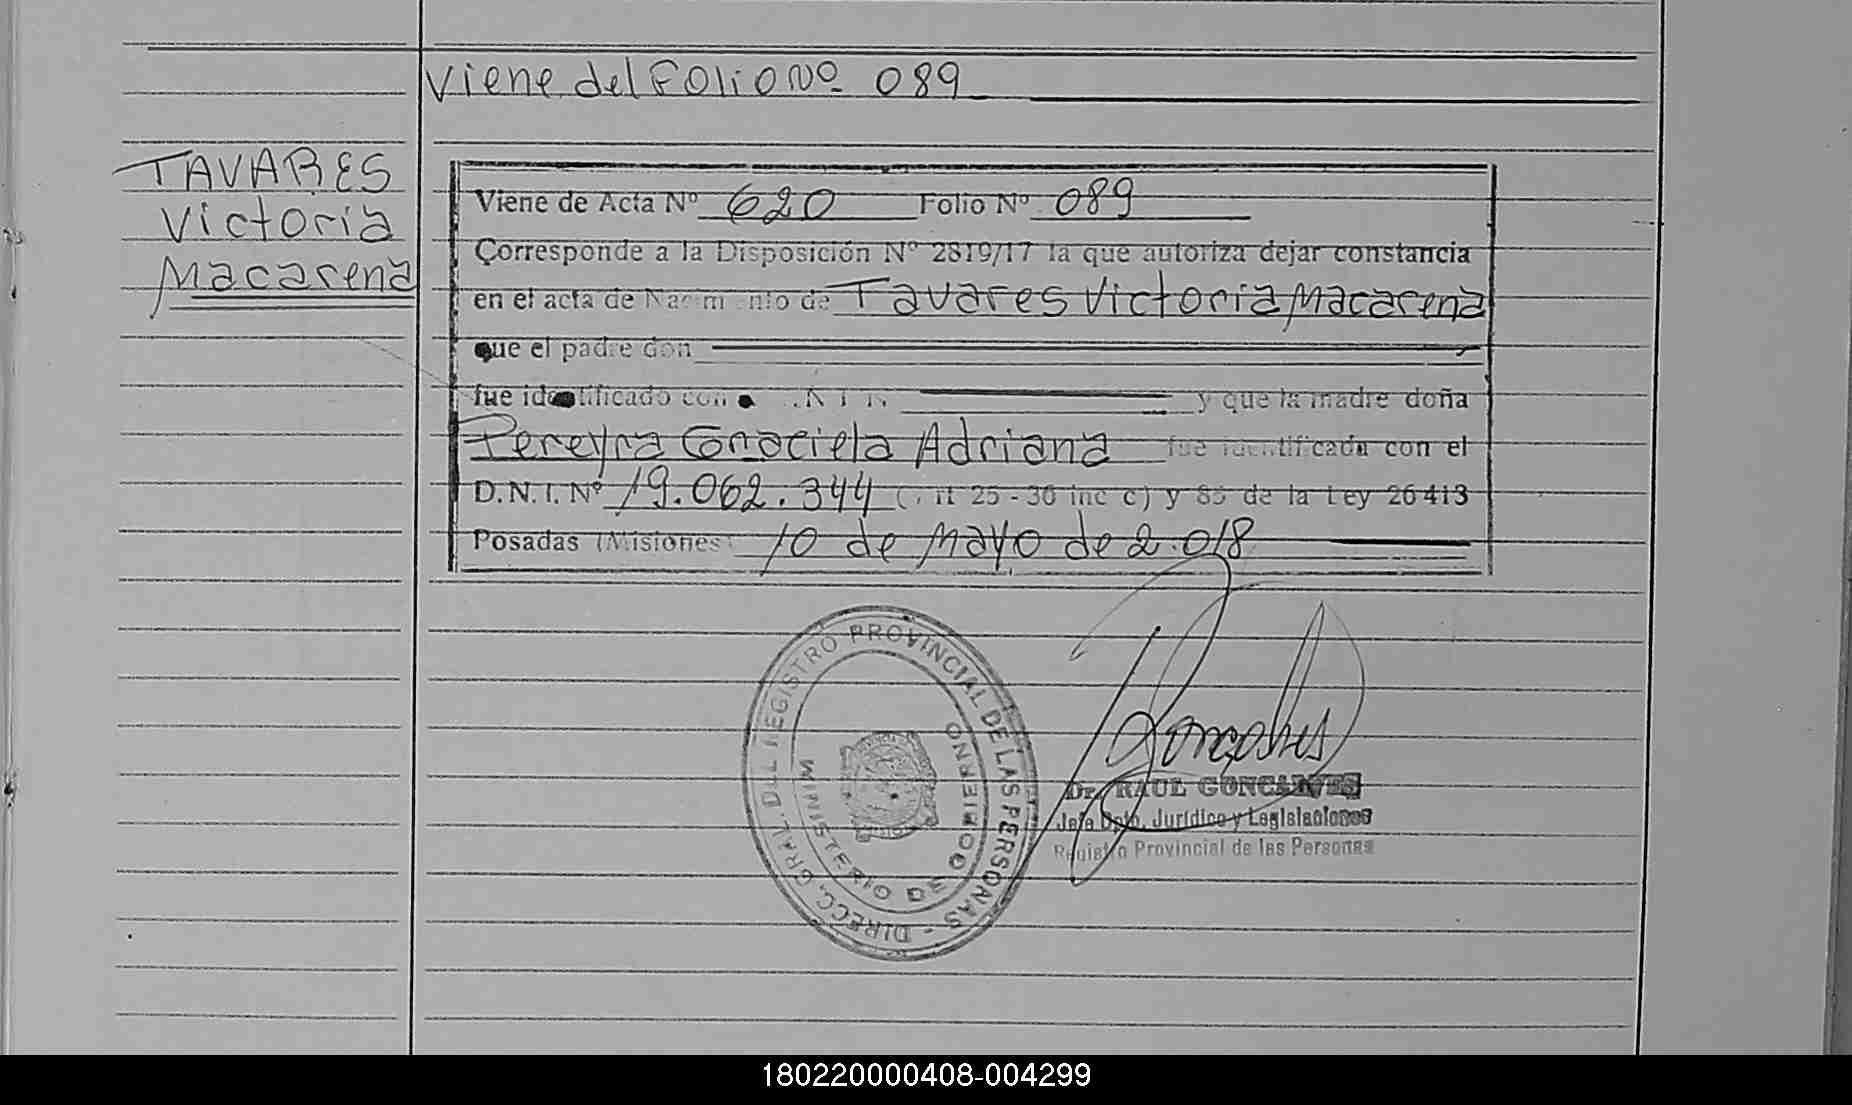 Viene del Folio Nº 089
TAVARES
Victoria
Macarena
Viene de Acta Nº 620 Folio Nº 089
Corresponde a la Disposición Nº 2819/17 la que autoriza dejar constancia
en el acta de Nacimiento de Tavares Victoria Macarena
que el padre don
fue identificado con y que la madre doña
Pereyra Graciela Adriana fue identificada con el
D.N.I. Nº 19.062.344 (Art 25 - 36 inc c) y 85 de la Ley 26413
Posadas (Misiones) 10 de Mayo de 2.018
DIRECC. GRAL. DEL REGISTRO PROVINCIAL DE LAS PERSONAS -
MINISTERIO DE GOBIERNO
Goncalves
Dr. RAUL GONCALVES
Jefe Dpto. Jurídico y Legislaciones
Registro Provincial de las Personas
180220000408-004299